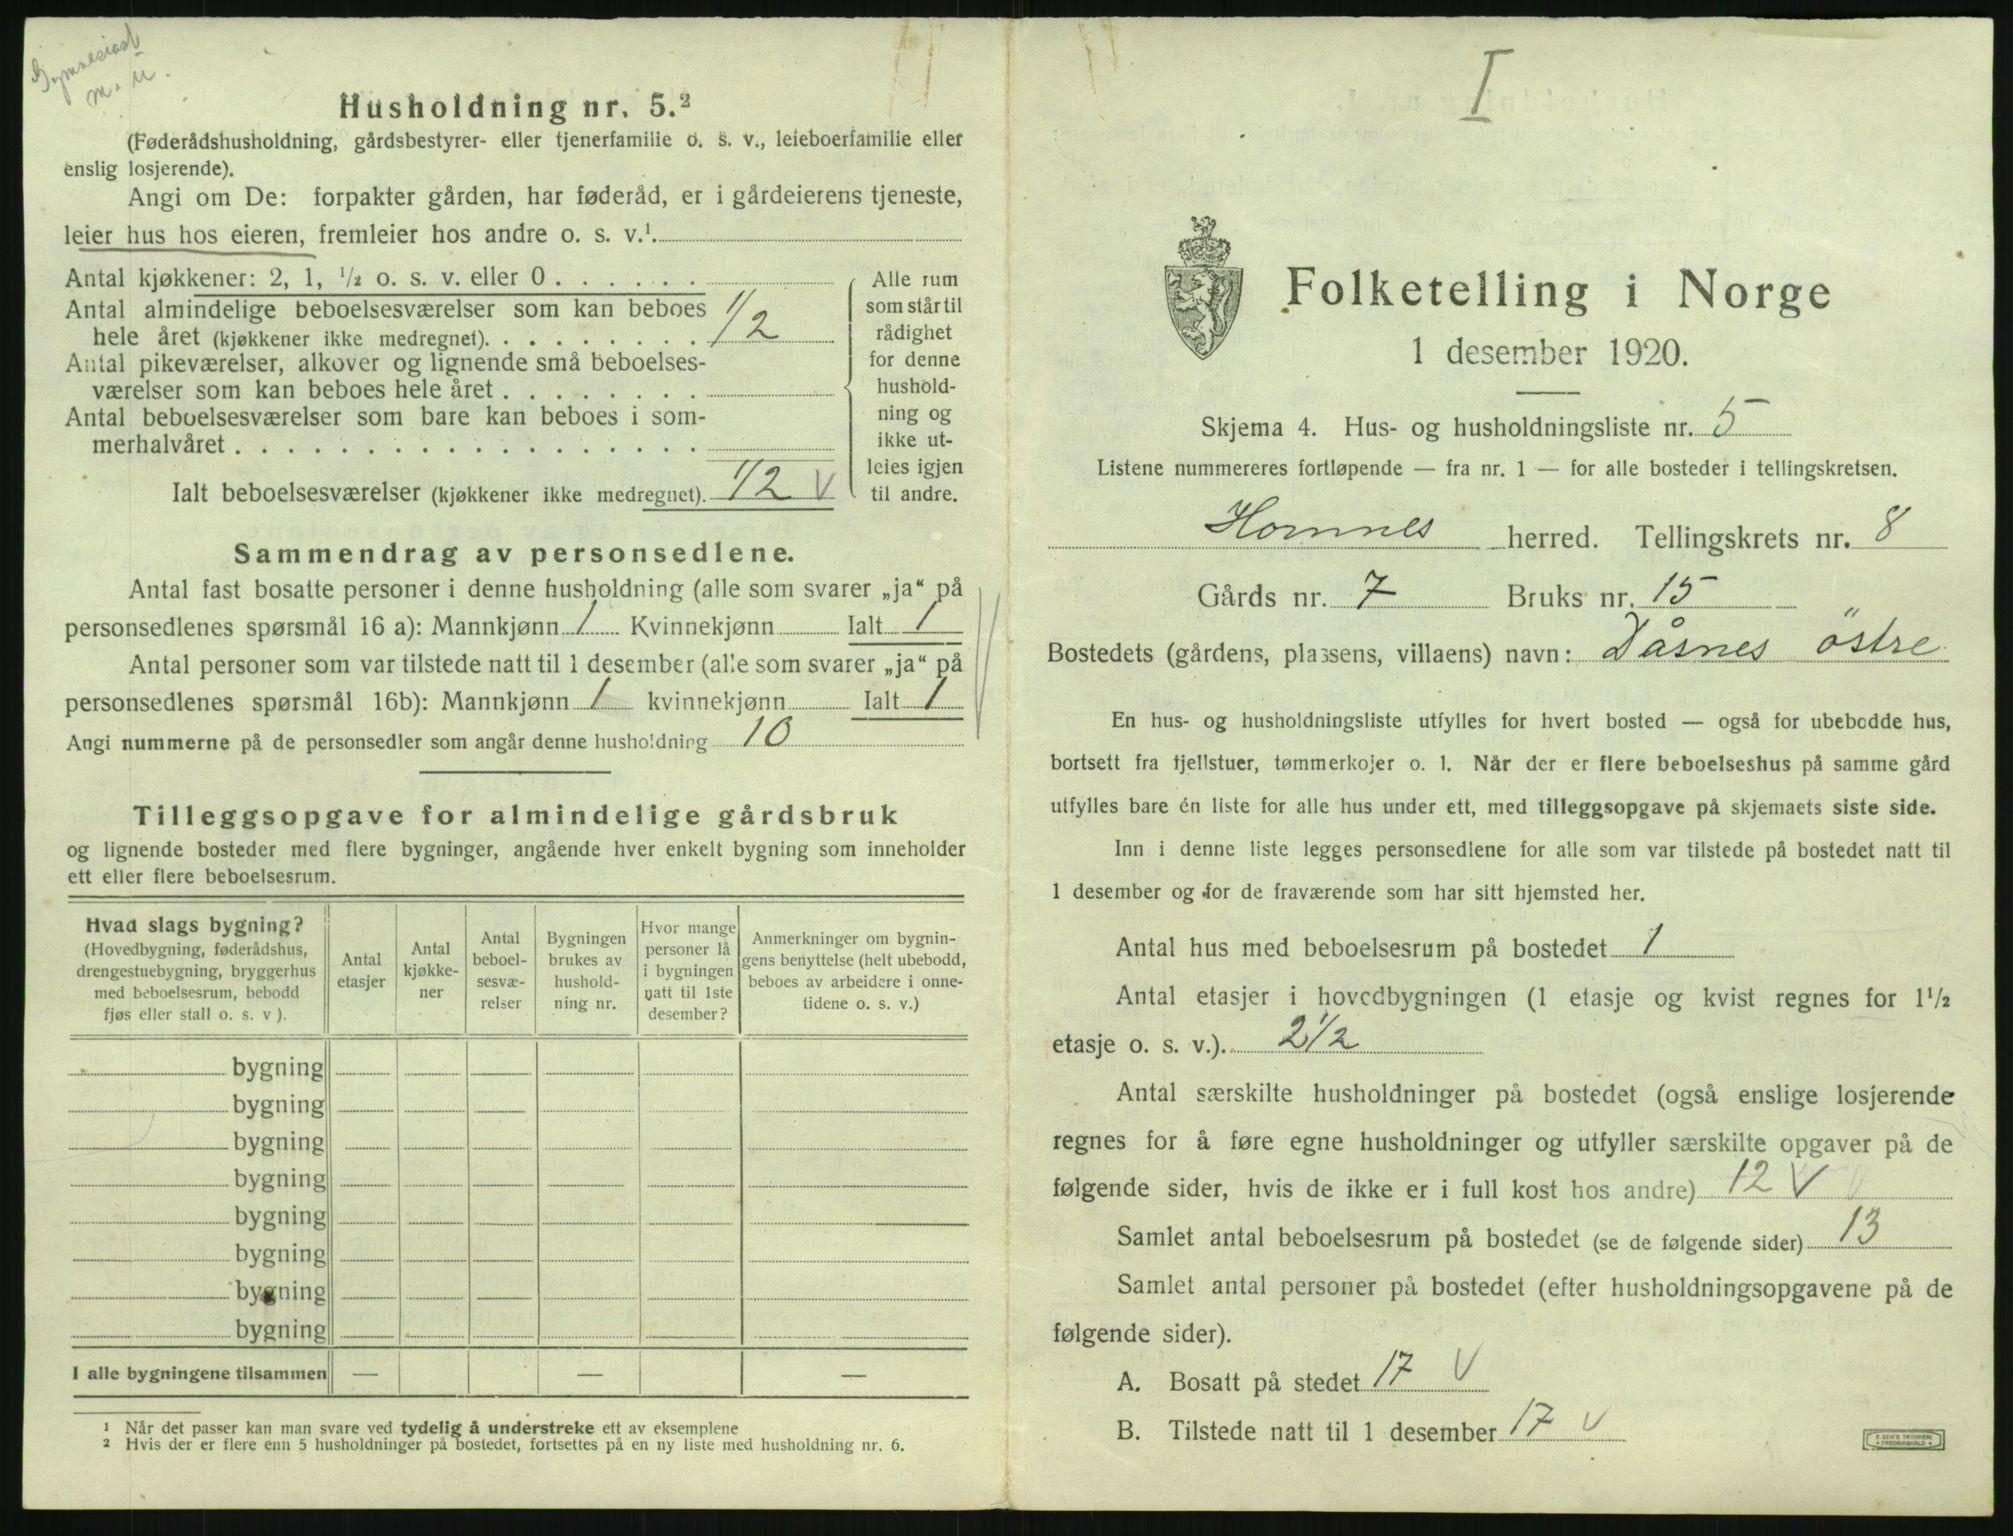 Gymnasiast
m. u.
Husholdning nr. 5.²
(Føderådshusholdning, gårdsbestyrer- eller tjenerfamilie o. s. v., leieboerfamilie eller
enslig losjerende).
Angi om De: forpakter gården, har føderåd, er i gårdeierens tjeneste,
leier hus hos eieren, fremleier hos andre o. s. v.¹.
Antal kjøkkener: 2, 1, ½ o. s. v. eller 0 . . . . . .
Antal almindelige beboelsesværelser som kan beboes
hele året (kjøkkener ikke medregnet). . . . . . . . . 1/2
Antal pikeværelser, alkover og lignende små beboelses-
værelser som kan beboes hele året . . . . . . . .
Antal beboelsesværelser som bare kan beboes i som-
merhalvåret . . . . . . . . . . . . . . . . . .
Ialt beboelsesværelser (kjøkkener ikke medregnet). 1/2 V
Alle rum
som står til
rådighet
for denne
hushold-
ning og
ikke ut-
leies igjen
til andre.
Sammendrag av personsedlene.
Antal fast bosatte personer i denne husholdning (alle som svarer „ja“ på
personsedlenes spørsmål 16 a): Mannkjønn 1 Kvinnekjønn Ialt 1
Antal personer som var tilstede natt til 1 desember (alle som svarer „ja“ på
personsedlenes spørsmål 16b): Mannkjønn 1 kvinnekjønn Ialt 1
Angi nummerne på de personsedler som angår denne husholdning 10
Tilleggsopgave for almindelige gårdsbruk
og lignende bosteder med flere bygninger, angående hver enkelt bygning som inneholder
ett eller flere beboelsesrum.
Hvad slags bygning?
(Hovedbygning, føderådshus,
drengestuebygning, bryggerhus
med beboelsesrum, bebodd
fjøs eller stall o. s. v ).
Antal
etasjer
Antal
kjøkke-
ner
Antal
beboel-
sesvæ-
relser
Bygningen
brukes av
hushold-
ning nr.
Hvor mange
personer lå
i bygningen
natt til 1ste
desember?
Anmerkninger om bygnin-
gens benyttelse (helt ubebodd,
beboes av arbeidere i onne-
tidene o. s. v.)
bygning
bygning
bygning
bygning
bygning
bygning
bygning
bygning
I alle bygningene tilsammen — — —
¹ Når det passer kan man svare ved tydelig å understreke ett av eksemplene
² Hvis der er flere enn 5 husholdninger på bostedet, fortsettes på en ny liste med husholdning nr. 6.
I
Folketelling i Norge
1 desember 1920.
Skjema 4. Hus- og husholdningsliste nr. 5
Listene nummereres fortløpende — fra nr. 1 — for alle bosteder i tellingskretsen.
Hornnes herred. Tellingskrets nr. 8
Gårds nr. 7 Bruks nr. 15
Bostedets (gårdens, plassens, villaens) navn: Dåsnes östre
En hus- og husholdningsliste utfylles for hvert bosted — også for ubebodde hus,
bortsett fra fjellstuer, tømmerkojer o. l. Når der er flere beboelseshus på samme gård
utfylles bare én liste for alle hus under ett, med tilleggsopgave på skjemaets siste side.
Inn i denne liste legges personsedlene for alle som var tilstede på bostedet natt til
1 desember og for de fraværende som har sitt hjemsted her.
Antal hus med beboelsesrum på bostedet 1
Antal etasjer i hovedbygningen (1 etasje og kvist regnes for 1½
etasje o. s. v.). 2 1/2
Antal særskilte husholdninger på bostedet (også enslige losjerende
regnes for å føre egne husholdninger og utfyller særskilte opgaver på de
følgende sider, hvis de ikke er i full kost hos andre) 12 V
Samlet antal beboelsesrum på bostedet (se de følgende sider) 13
Samlet antal personer på bostedet (efter husholdningsopgavene på de
følgende sider).
A. Bosatt på stedet 17 V
B. Tilstede natt til 1 desember 17 V
E. SEM'S TRYKKERI
FREDRIKSHALD